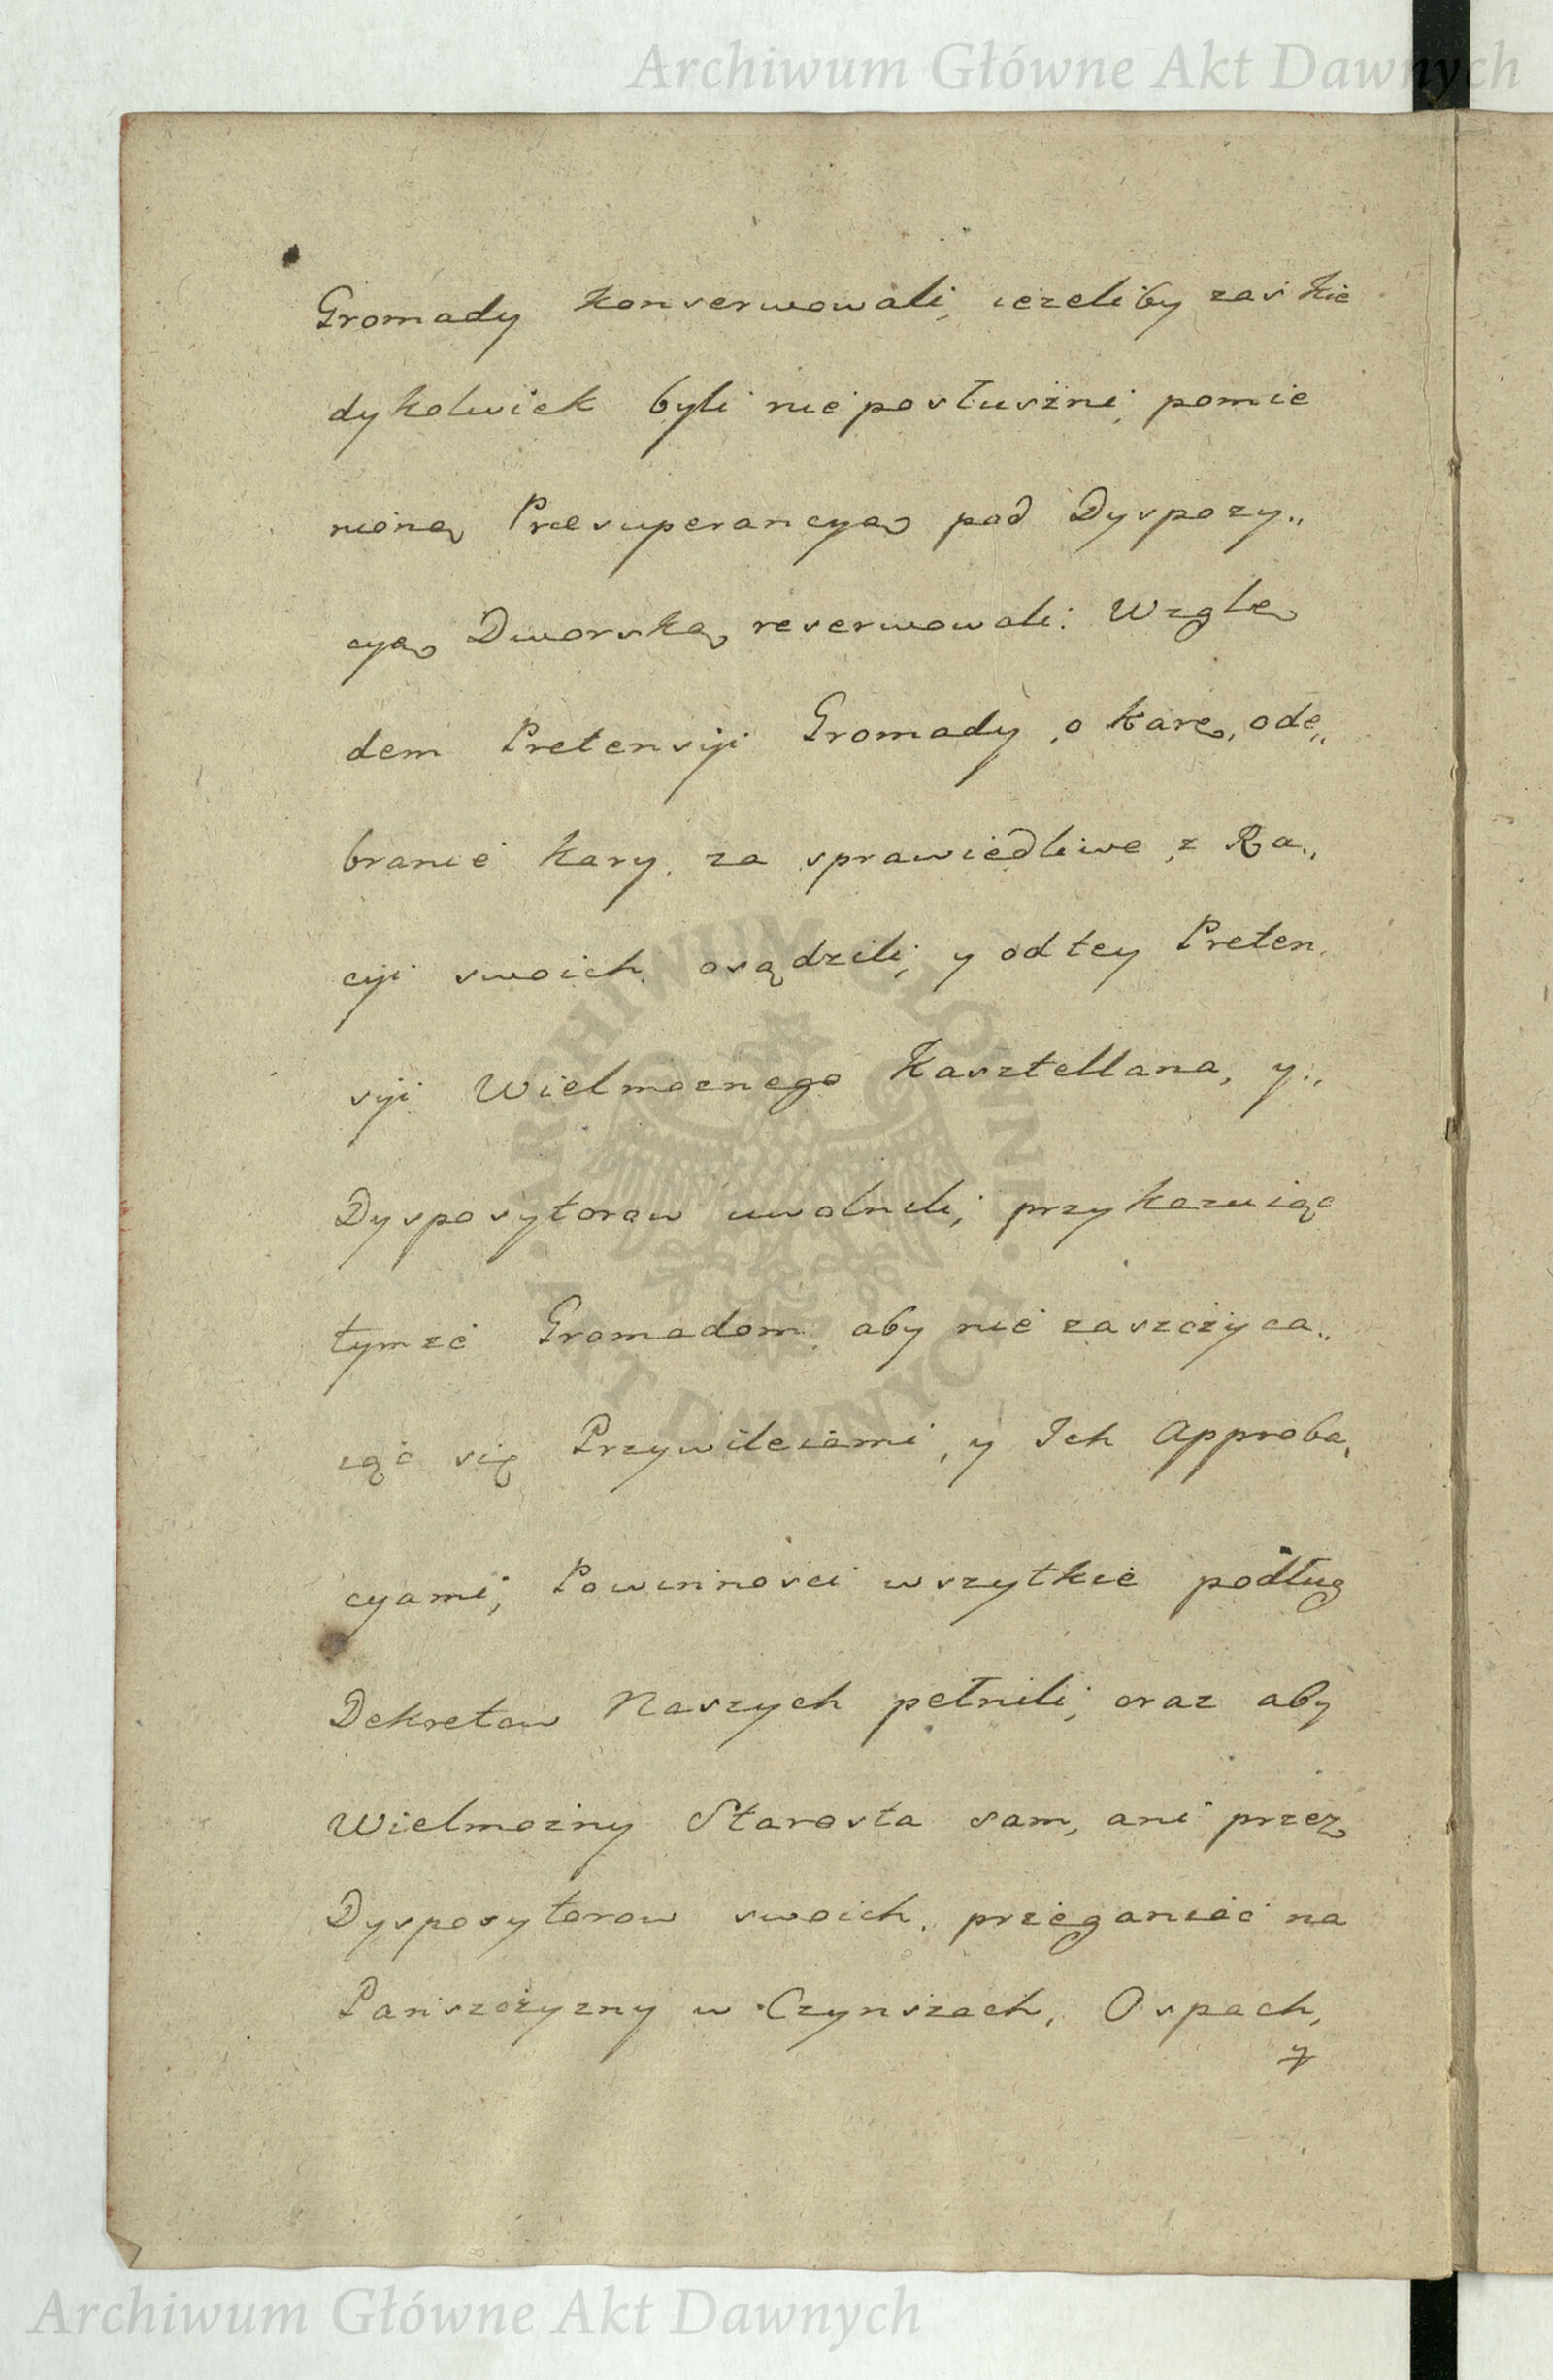 Archiwum Główne Akt Dawnych
Gromady konserwowali, ieżeliby zaś kie
dykolwiek byli nieposłuszni, pomie
nioną Presuperancyą pod Dyspozy„
cyą Dworską reserwowali: Wzglę
dem Pretensyi Gromady o karę, ode„
branie kary, za sprawiedliwe, z Ra„
cyi swoich osądzili, y od tey Preten„
syi Wielmoznego Kasztellana, y„
Dysposytorow uwolnili, przykazuiąc
tymze Gromadom, aby nie zaszczyca„
iąc się Przywileiami, y Ich Approba„
cyami, Powinnosci wszytkie podług
Dekretow Naszych pełnili, oraz aby
Wielmozny Starosta sam, ani przez
Dysposytorow swoich, przeganiać na
Pańszczyzny w Czynszach, Ospach,
y
ARCHIWUM GŁÓWNE
AKT DAWNYCH
Archiwum Główne Akt Dawnych